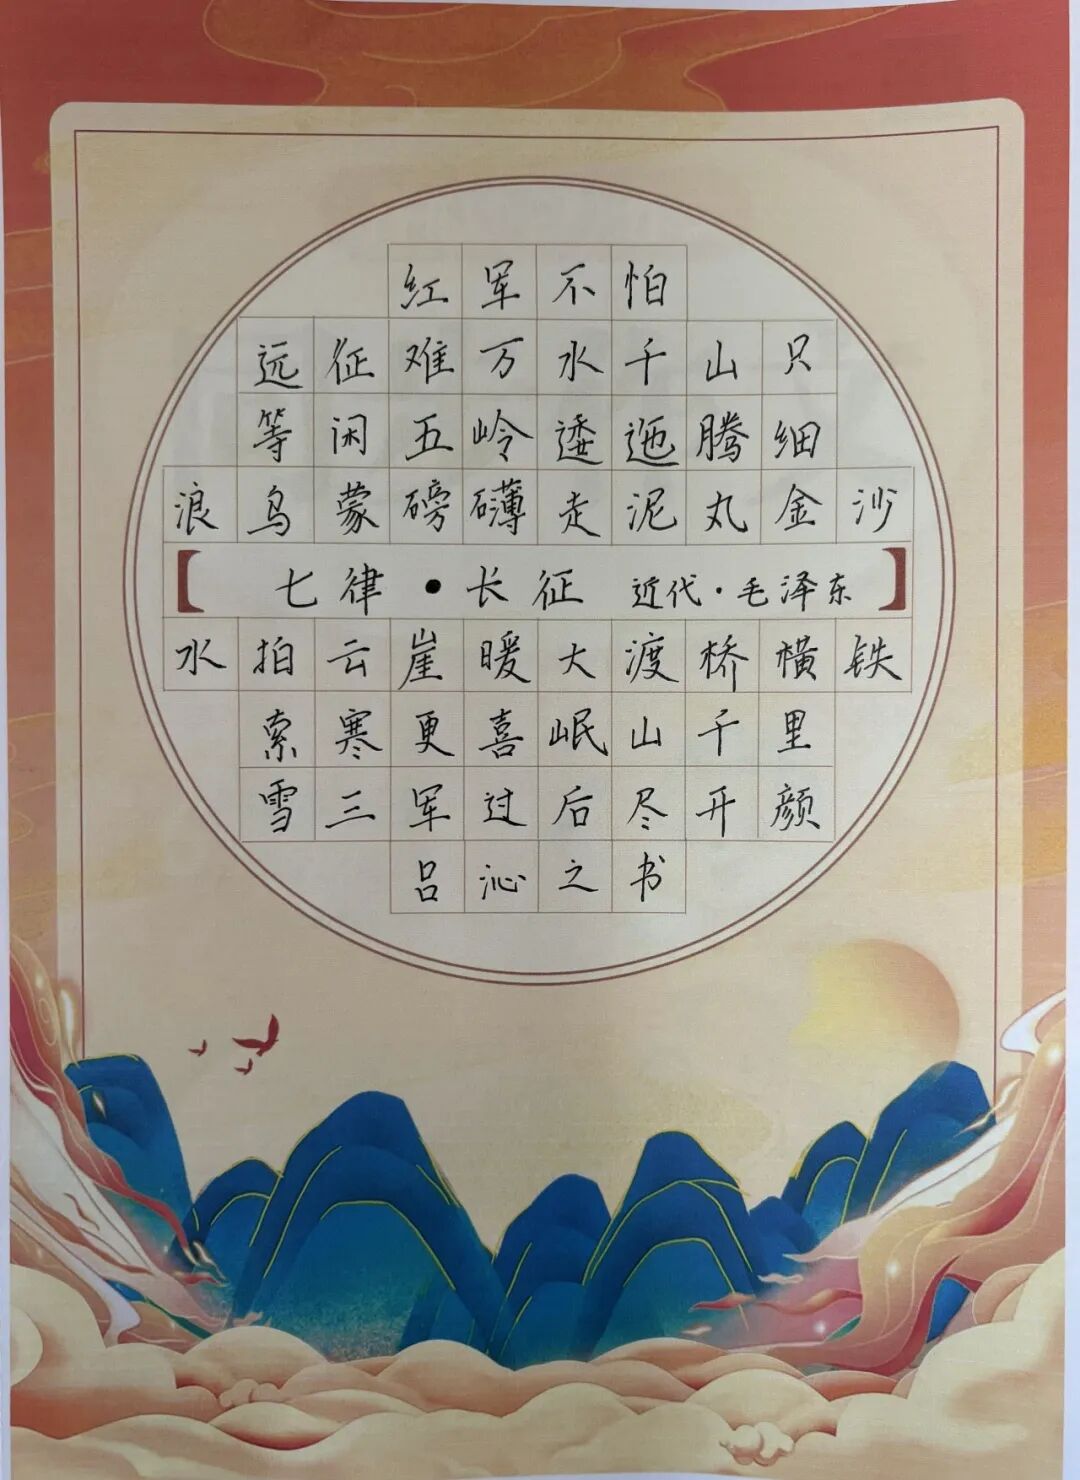 红军不怕
远征难万水千山只
等闲五岭逶迤腾细
浪乌蒙磅礴走泥丸金沙
【七律·长征 近代·毛泽东】
水拍云崖暖大渡桥横铁
索寒更喜岷山千里
雪三军过后尽开颜
吕沁之书